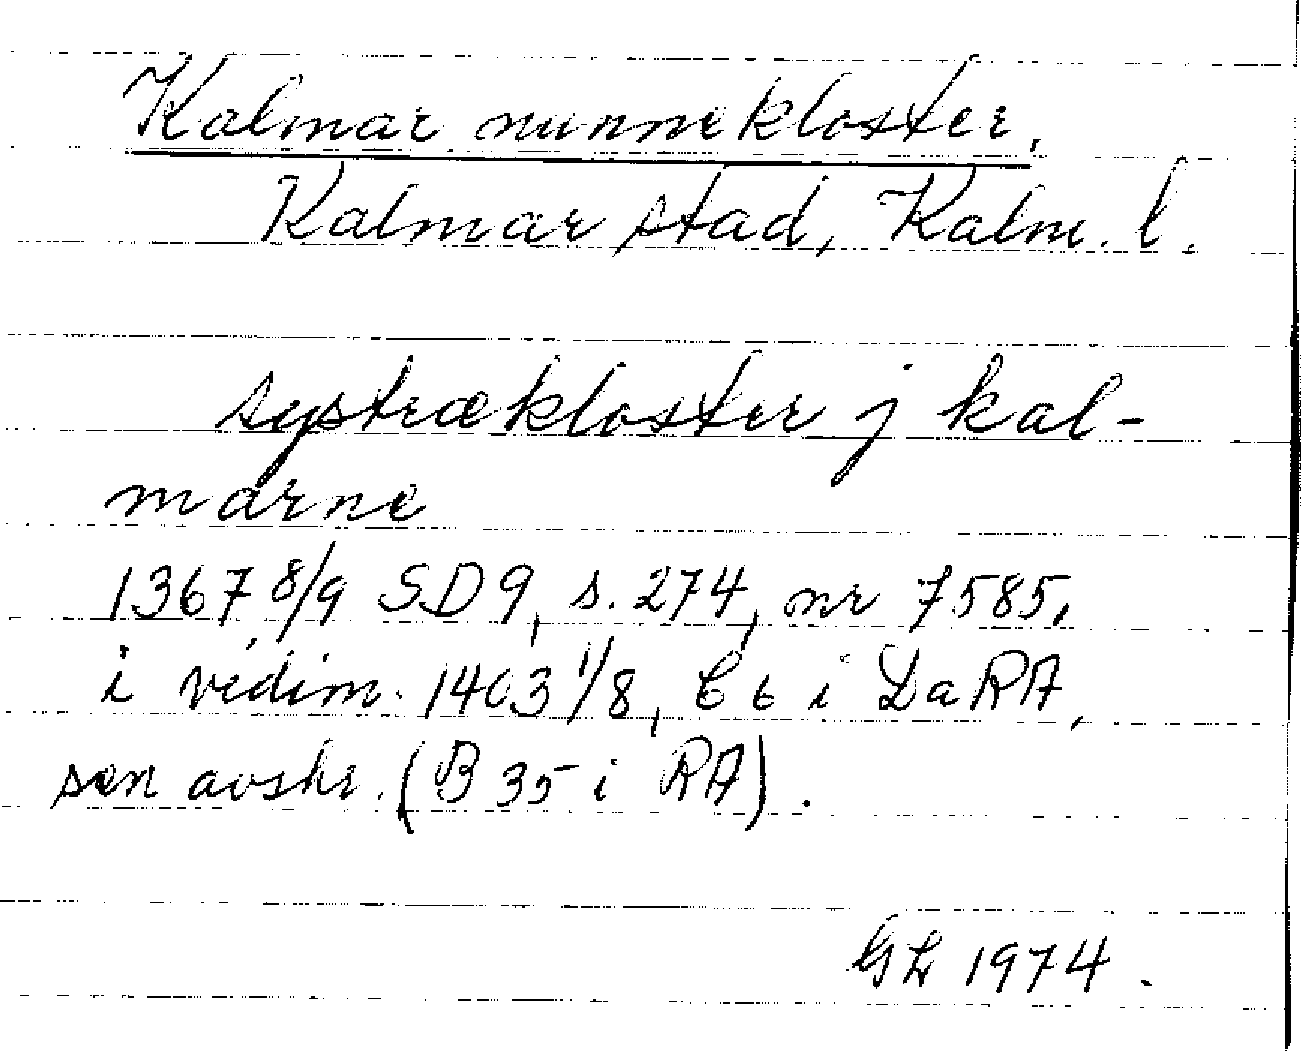 Kalmar nunnekloster,
Kalmar stad, Kalm. l.
systrækloster j kal-
marne
1367 8/9 SD9, s. 274, nr 7585,
i vidim. 1403 1/8, C6 i DaRA,
sen avskr. (B 35 i RA).
GL 1974.